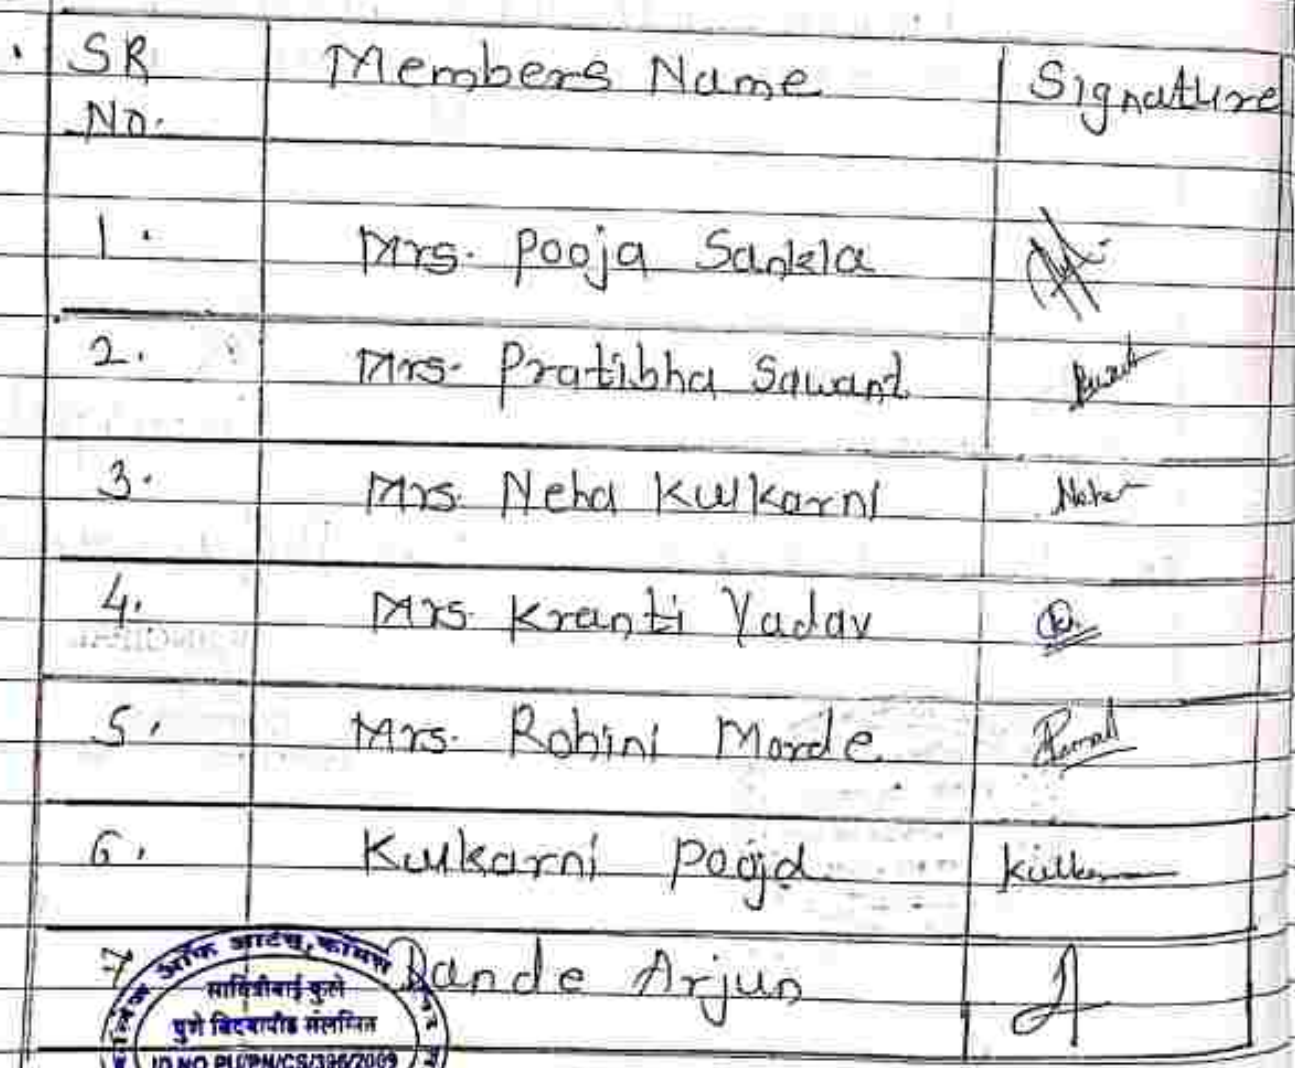 SR No. Members Name Signature
1. Mrs. Pooja Sankla
2. Mrs. Pratibha Sawant
3. Mrs. Neha Kulkarni Neha
4. Mrs. Kranti Yadav
5. Mrs. Rohini Morde
6. Kulkarni Pooja
7 Dande Arjun
ऑफ आर्टस्, कॉमर्स
सावित्रीबाई फुले
पुणे विद्यापीठ संलग्नित
ID NO PU/PN/CS/396/2009